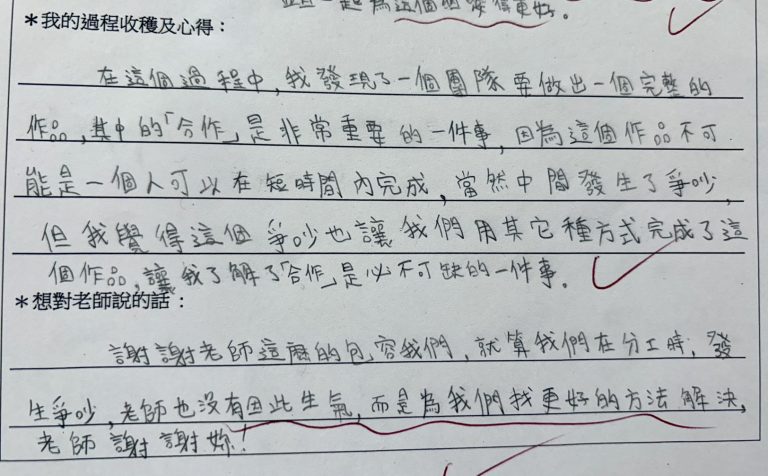 一起為這個團變得更好。
*我的過程收穫及心得：
在這個過程中，我發現了一個團隊要做出一個完整的
作品，其中的「合作」是非常重要的一件事，因為這個作品不可
能是一個人可以在短時間內完成，當然中間發生了爭吵，
但我覺得這個爭吵也讓我們用其它種方式完成了這
個作品，讓我了解了「合作」是必不可缺的一件事。
*想對老師說的話：
謝謝老師這麼的包容我們，就算我們在分工時，發
生爭吵，老師也沒有因此生氣，而是為我們找更好的方法解決，
老師謝謝妳！